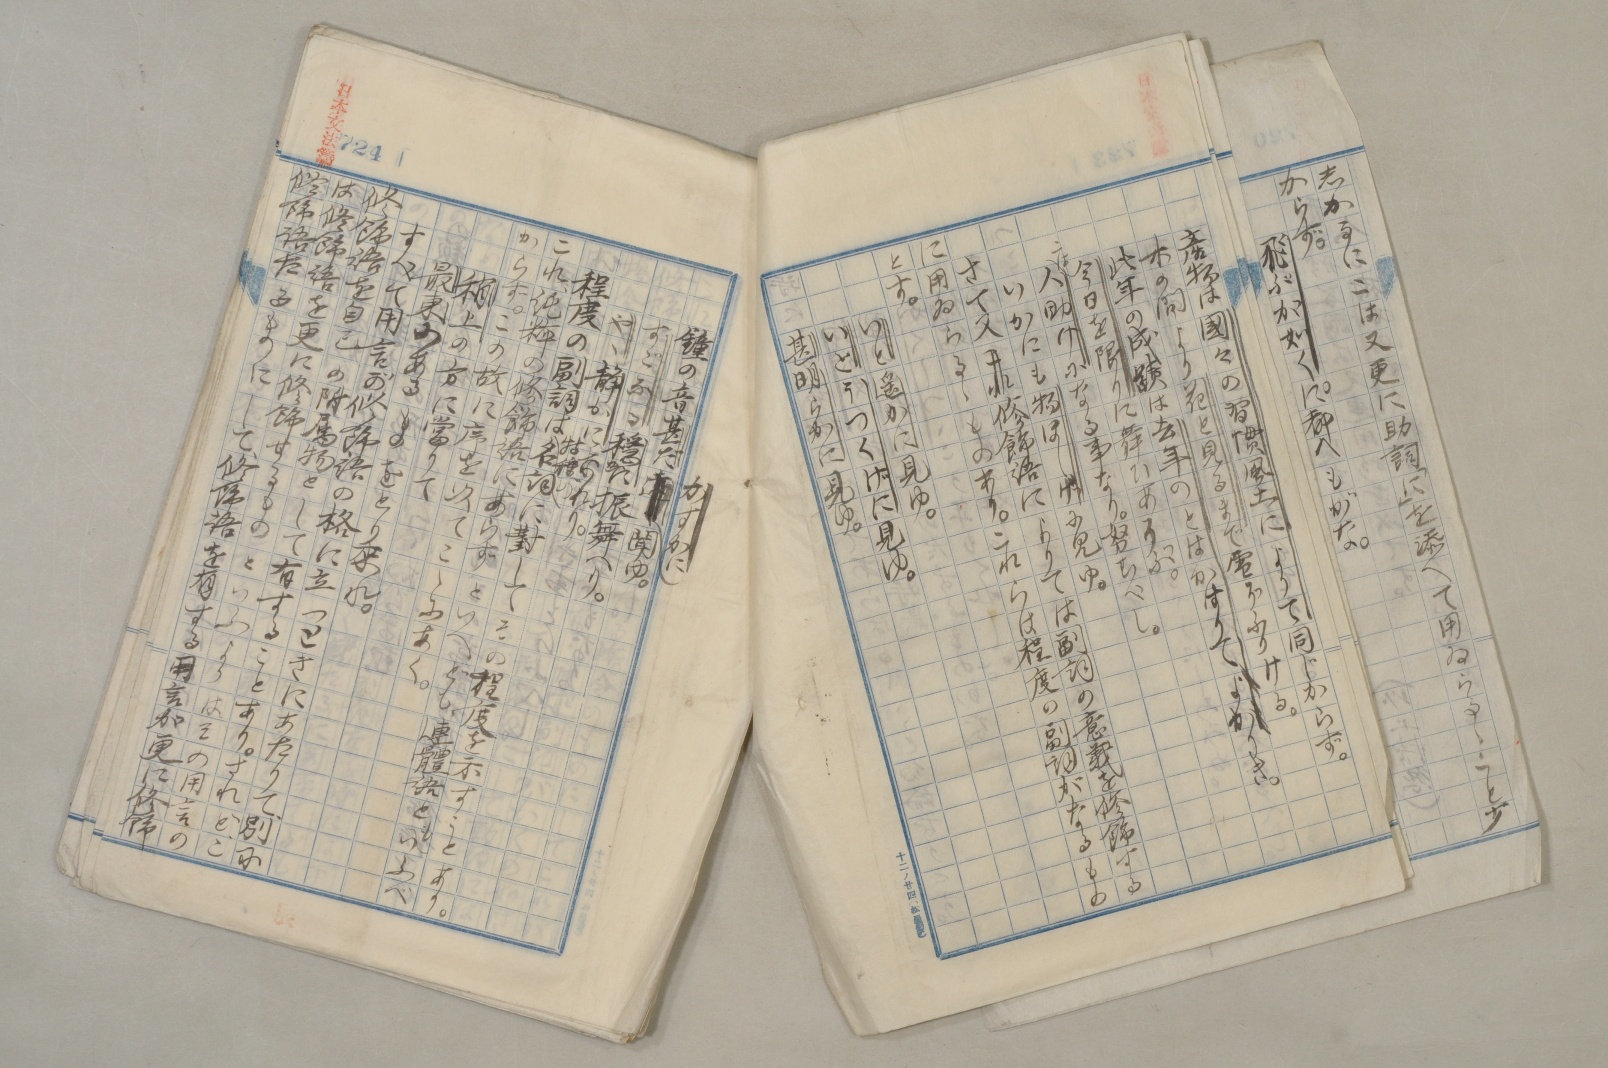 志かるにこは又更に助詞にを添へて用ゐらるゝこと少
からず。
飛ぶが如くに都へもがな。
産物は國々の習慣風土によりて同じからず。
木の間より花と見るまで雪ぞふりける。
此年の成蹟は去年のとはかはりてよかりき。
今日を限りに舞ひあそぶ。
人助けになる事なり。努むべし。
いかにも物ほしげに見ゆ。
さて又これ修飾語によりては副詞の意義を修飾する
に用ゐらるゝものあり。これらは程度の副詞がなるもの
とす。
いと遙かに見ゆ。
いとうつくしげに見ゆ。
甚明らかに見ゆ。
724
鐘の音甚だかすかに聞ゆ。
すこぶる穩に振舞へり。
やゝ靜かになれり。
程度の副詞は名詞に對してその程度を示すことあり。
これ純粹の修飾語にあらずといへども連體語ともいふべ
からず。この故に序を以てこゝにおく。
稍上の方に當りて
最東にあるものをとり來れ。
すべて用言が修飾語の格に立つときにあたりて別に
修飾語を自己の附屬物として有することあり。されどこ
は修飾語を更に修飾するものといふよりはその用言の
修飾語たるまゝにして修飾語を有する用言が更に修飾